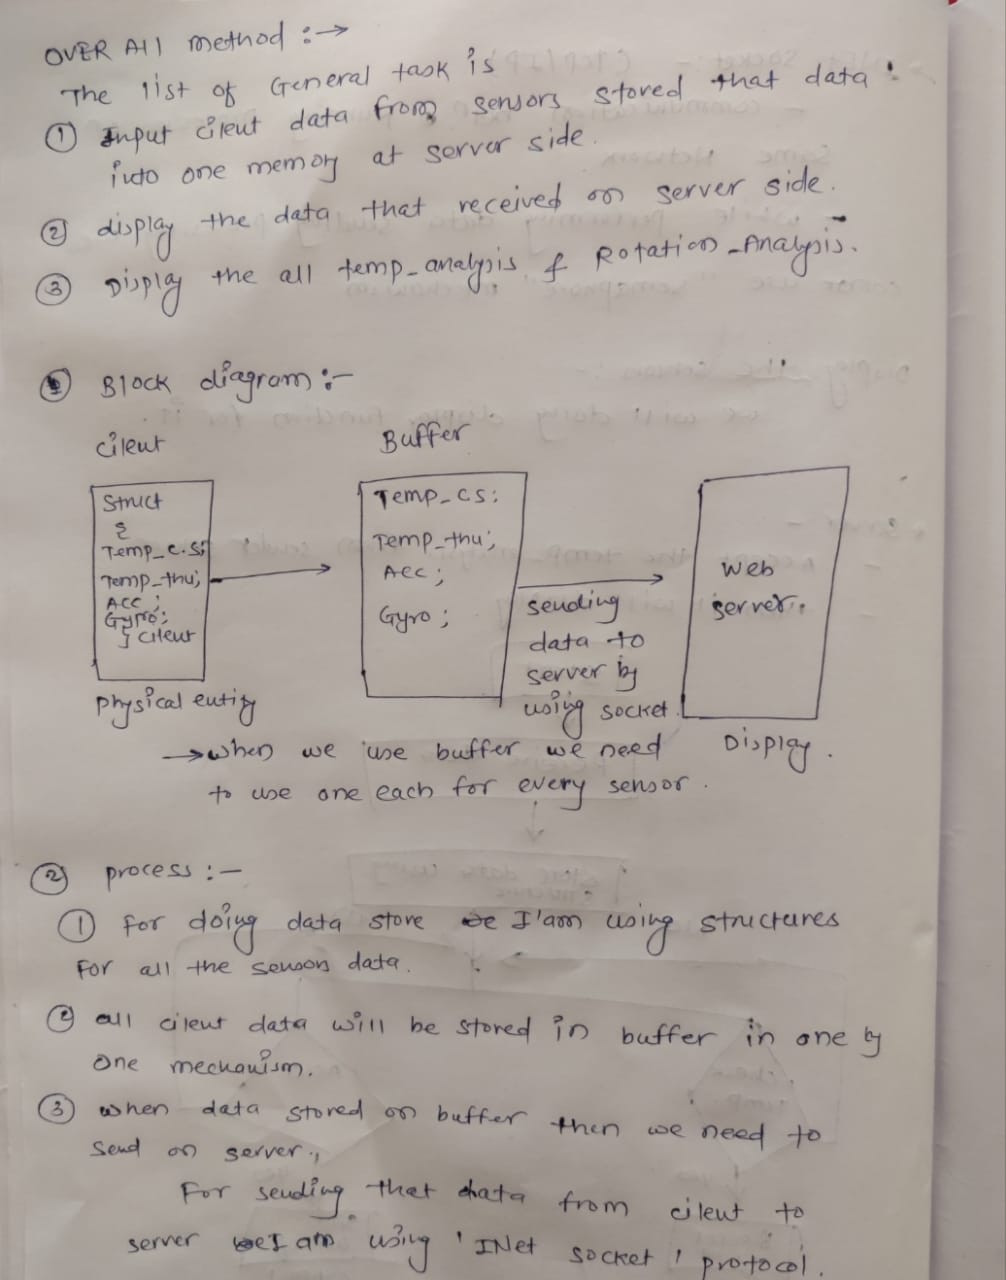 OVER All method :→
The list of General task is
① Input cileut data from sensors stored that data
into one memory at server side.
② display the data that received on server side.
③ Display the all temp_analysis & Rotation_Analysis.
① Block diagram :-
cileut
Buffer
Struct
{
Temp_c.s;
Temp_thu;
Acc ;
Gyro;
} cileut
physical entity
Temp_cs;
Temp_thu;
Acc ;
Gyro ;
sending
data to
server by
using socket.
web
server.
Display.
→ when we use buffer we need
to use one each for every sensor.
② process :-
① For doing data store I'am using structures
For all the sensors data.
② all cileut data will be stored in buffer in one by
one mechanism.
③ when data stored on buffer then we need to
Send on server.,
For sending that data from cileut to
server I am using 'INet socket' protocol.